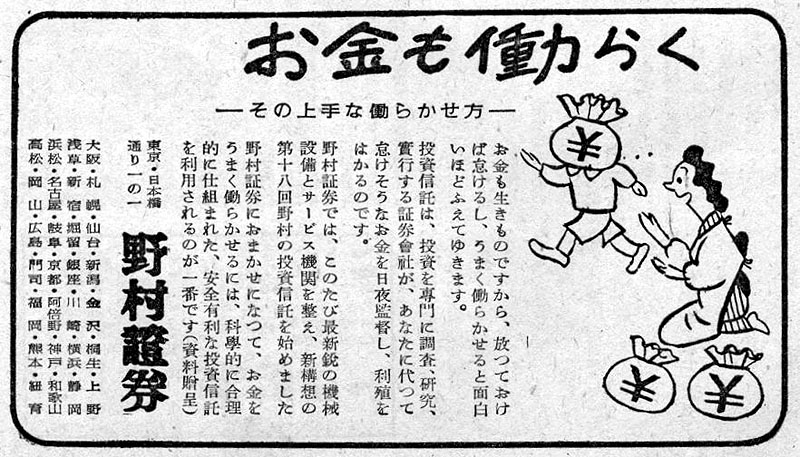 お金も働らく
―その上手な働らかせ方―
お金も生きものですから、放つておけ
ば怠けるし、うまく働らかせると面白
いほどふえてゆきます。
投資信託は、投資を専門に調査、研究、
實行する証券會社が、あなたに代つて
怠けそうなお金を日夜監督し、利殖を
はかるのです。
野村証券では、このたび最新鋭の機械
設備とサービス機関を整え、新構想の
第十八回野村の投資信託を始めました
野村証券におまかせになつて、お金を
うまく働らかせるには、科學的に合理
的に仕組まれた、安全有利な投資信託
を利用されるのが一番です(資料贈呈)
東京・日本橋
通り一の一
野村證券
大阪・札幌・仙台・新潟・金沢・桐生・上野
浅草・新宿・堀留・銀座・川崎・横浜・靜岡
浜松・名古屋・岐阜・京都・阿倍野・神戸・和歌山
高松・岡山・広島・門司・福岡・熊本・紐育